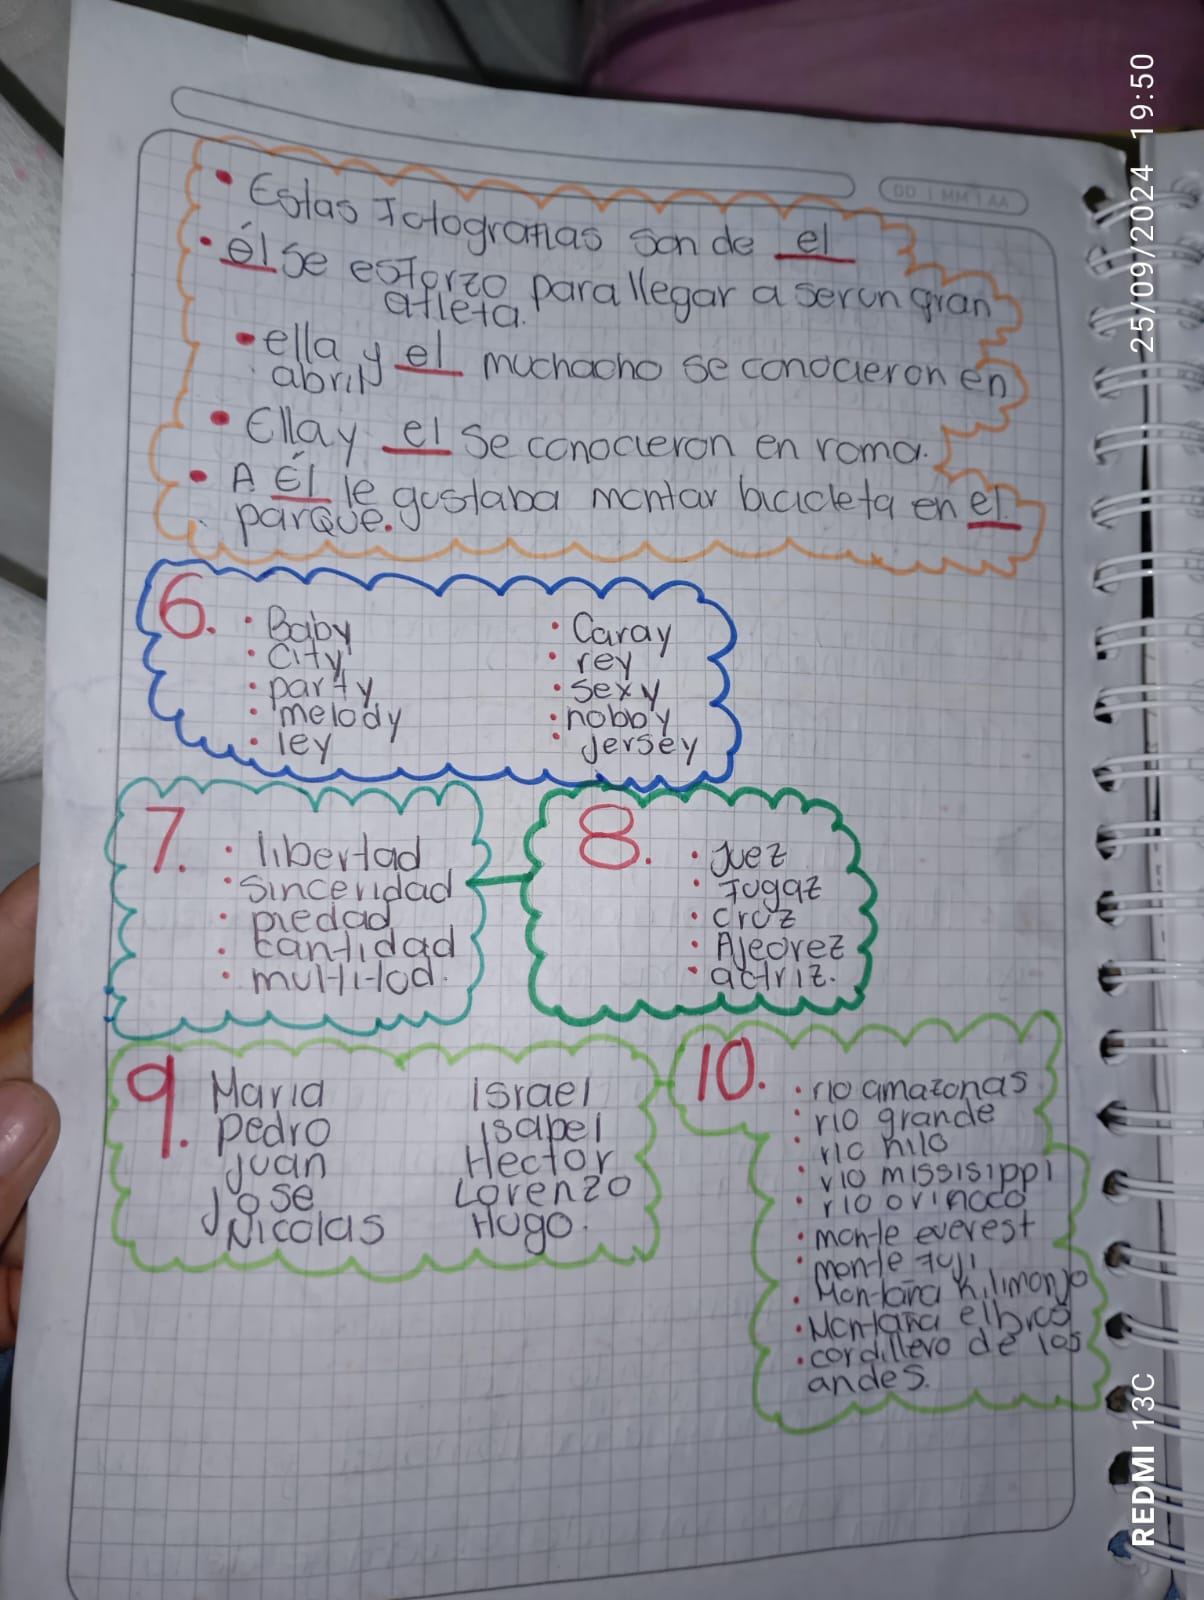 DD | MM | AA
• Estas Fotogramas son de el
• él se esforzo para llegar a ser un gran
atleta.
• ella y el muchacho se conocieron en
abril
• Ella y el se conocieron en roma.
• A Él le gustaba montar bicicleta en el.
parque.
6. • Baby
• City
• party
• melody
• ley
• Caray
• rey
• sexy
• hobby
• Jersey
7. • libertad
• sinceridad
• piedad
• cantidad
• multitud.
8. • Juez
• Fugaz
• cruz
• Ajedrez
• actriz.
9. Maria
Pedro
Juan
Jose
Nicolas
Israel
Isabel
Hector
Lorenzo
Hugo.
10. • rio amazonas
• rio grande
• rio nilo
• rio missisippi
• rio orinoco
• monte everest
• monte Fuji
• Montaña Kilimonjo
• Montaña elbros
• cordillera de los
andes.
25/09/2024 19:50
REDMI 13C